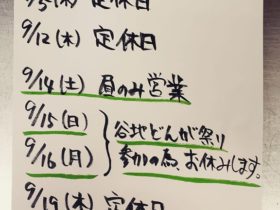 9/5(木) 定休日
9/12(木) 定休日
9/14(土) 昼のみ営業
9/15(日)
9/16(月)
谷地どんが祭り
参加の為、お休みします。
9/19(木) 定休日